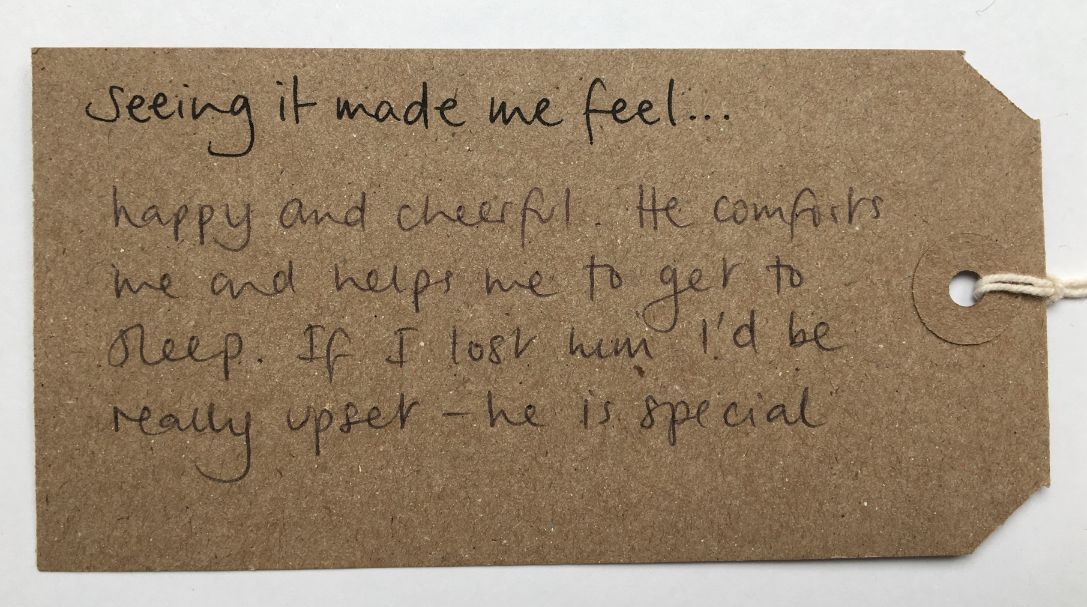 Seeing it made me feel...
happy and cheerful. He comforts
me and helps me to get to
sleep. If I lost him I'd be
really upset - he is special